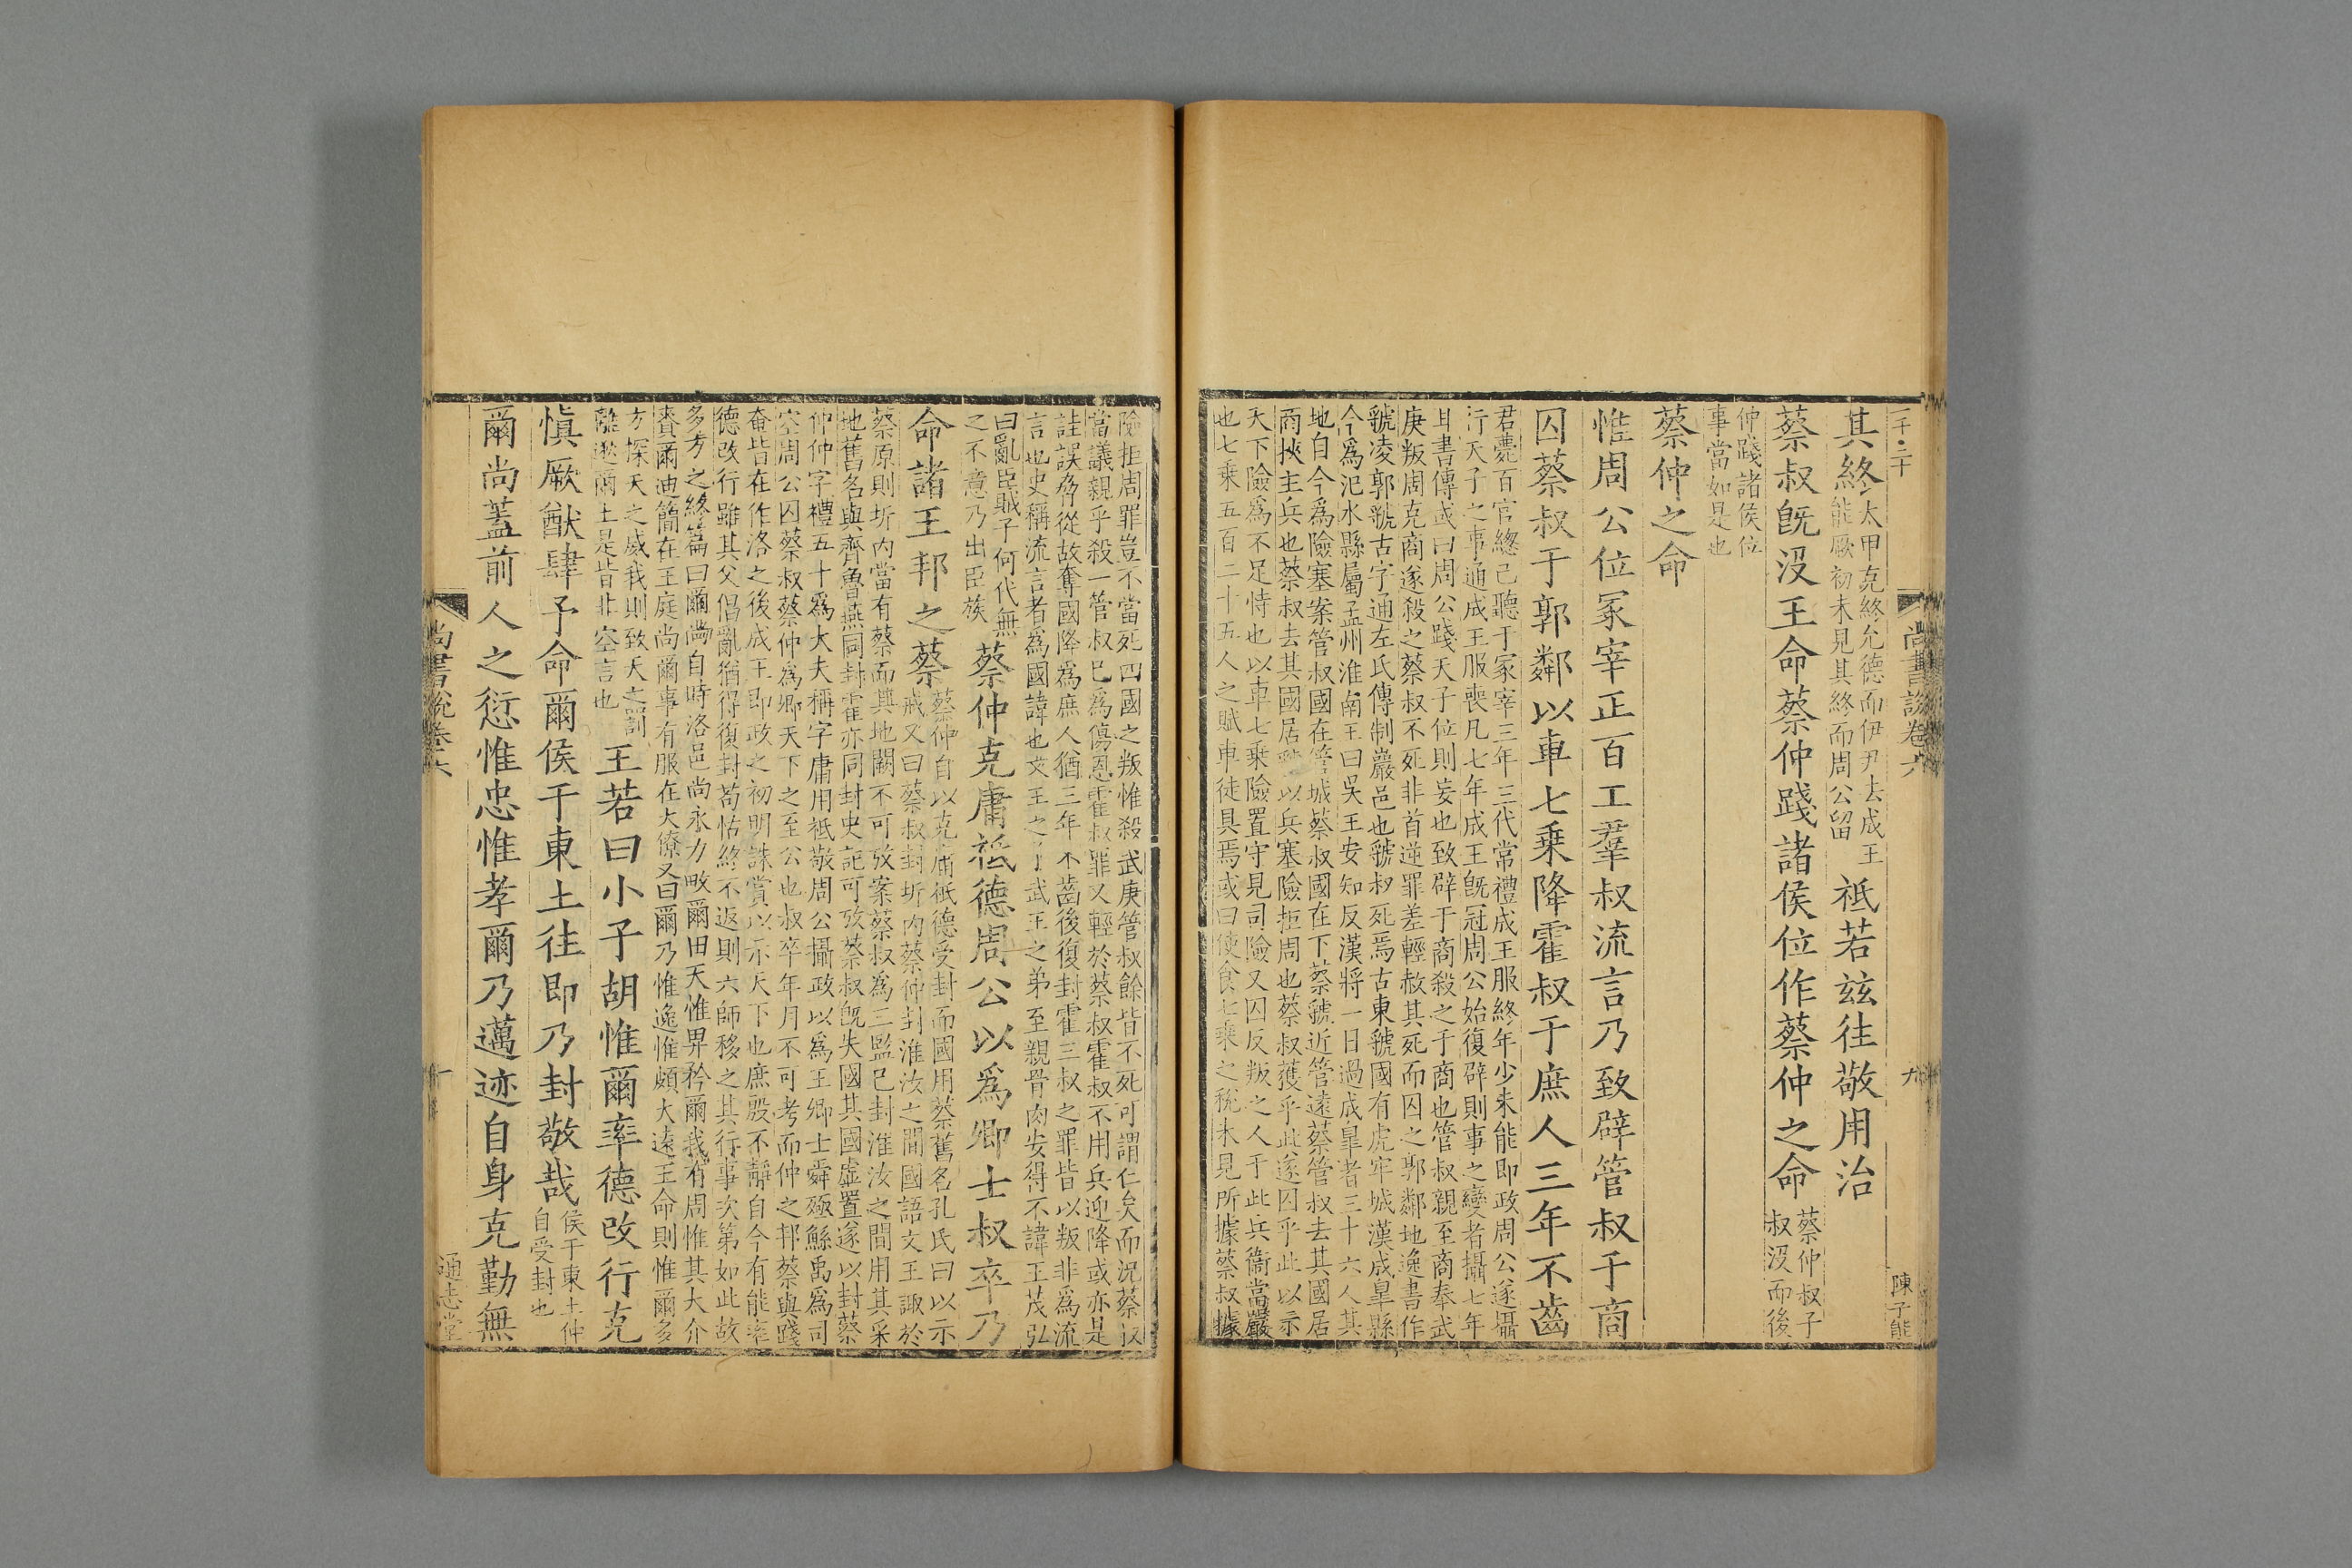 一千二十
尚書說卷六
九
陳子能
其終太甲克終允德而伊尹去成王
能厥初未見其終而周公留
祗若茲往敬用治
蔡叔旣沒王命蔡仲踐諸侯位作蔡仲之命蔡仲叔子
叔沒而後
仲踐諸侯位
事當如是也
蔡仲之命
惟周公位冢宰正百工羣叔流言乃致辟管叔于商
囚蔡叔于郭鄰以車七乘降霍叔于庶人三年不齒
君薨百官緫己聽于冢宰三年三代常禮成王服終年少未能即政周公遂攝
行天子之事通成王服喪凡七年成王旣冠周公始復辟則事之變者攝七年
耳書傳或曰周公踐天子位則妄也致辟于商殺之于商也管叔親至商奉武
庚叛周克商遂殺之蔡叔不死非首逆罪差輕赦其死而囚之郭鄰地逸書作
虢凌郭虢古字通左氏傳制巖邑也虢叔死焉古東虢國有虎牢城漢成臯縣
今爲汜水縣屬孟州淮南王曰吳王安知反漢將一日過成臯者三十六人其
地自今爲險塞案管叔國在管城蔡叔國在下蔡虢近管遠蔡管叔去其國居
商挾主兵也蔡叔去其國居虢以兵塞險拒周也蔡叔獲乎此遂囚乎此以示
天下險爲不足恃也以車七乘險置守見司險又囚反叛之人于此兵衞當嚴
也七乘五百二十五人之賦車徒具焉或曰使食七乘之稅未見所據蔡叔據
險拒周罪豈不當死四國之叛惟殺武庚管叔餘皆不死可謂仁矣而況蔡叔
當議親乎殺一管叔已爲傷恩霍叔罪又輕於蔡叔霍叔不用兵迎降或亦是
詿誤脅從故奪國降爲庶人猶三年不齒後復封霍三叔之罪皆以叛非爲流
言也史稱流言者爲國諱也文王之子武王之弟至親骨肉安得不諱王茂弘
曰亂臣賊子何代無
之不意乃出臣族
蔡仲克庸祗德周公以爲卿士叔卒乃
命諸王邦之蔡蔡仲自以克庸祗德受封而國用蔡舊名孔氏曰以示
戒又曰蔡叔封圻內蔡仲封淮汝之間國語文王諏於
蔡原則圻內當有蔡而其地闕不可攷案蔡叔爲三監已封淮汝之間用其采
地舊名與齊魯燕同封霍亦同封史記可攷蔡叔旣失國其國虛置遂以封蔡
仲仲字禮五十爲大夫稱字庸用祗敬周公攝政以爲王卿士舜殛鯀禹爲司
空周公囚蔡叔蔡仲爲卿天下之至公也叔卒年月不可考而仲之邦蔡與踐
奄皆在作洛之後成王即政之初明誅賞以示天下也庶殷不靜自今有能率
德改行雖其父倡亂猶得復封苟怙終不返則六師移之其行事次第如此故
多方之終篇曰爾尚自時洛邑尚永力畋爾田天惟畀矜爾我有周惟其大介
賚爾迪簡在王庭尚爾事有服在大僚又曰爾乃惟逸惟頗大遠王命則惟爾多
方探天之威我則致天之罰
離逖爾土是皆非空言也
王若曰小子胡惟爾率德改行克
愼厥猷肆予命爾侯于東土往即乃封敬哉侯于東土仲
自受封也
爾尚蓋前人之愆惟忠惟孝爾乃邁迹自身克勤無
尚書說卷六
通志堂